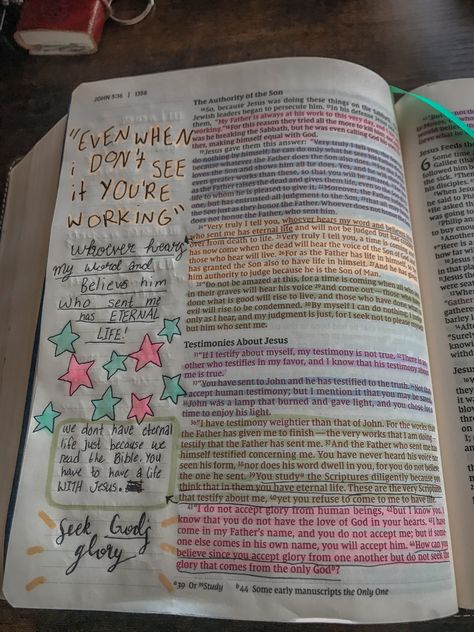 JOHN 5:16 | 1358
"EVEN WHEN
i DON'T SEE
iT YOU'RE
WORKING"
whoever hears
my word and
Believes him
who sent me
has ETERNAL
LIFE!
we dont have eternal
life just because we
read the Bible. You
have to have a life
WITH Jesus.
Seek God's
glory
The Authority of the Son
16So, because Jesus was doing these things on the Sabbath, the
Jewish leaders began to persecute him. 17In his defense Jesus said to
them, "My Father is always at his work to this very day, and I too am
working." 18For this reason they tried all the more to kill him; not only
was he breaking the Sabbath, but he was even calling God his own
Father, making himself equal with God.
19Jesus gave them this answer: "Very truly I tell you, the Son can
do nothing by himself; he can do only what he sees his Father doing,
because whatever the Father does the Son also does. 20For the Father
loves the Son and shows him all he does. Yes, and he will show him
even greater works than these, so that you will be amazed. 21For just
as the Father raises the dead and gives them life, even so the Son gives
life to whom he is pleased to give it. 22Moreover, the Father judges no
one, but has entrusted all judgment to the Son, 23that all may honor
the Son just as they honor the Father. Whoever does not honor the Son
does not honor the Father, who sent him.
24"Very truly I tell you, whoever hears my word and believes him
who sent me has eternal life and will not be judged but has crossed
over from death to life. 25Very truly I tell you, a time is coming and
has now come when the dead will hear the voice of the Son of God and
those who hear will live. 26For as the Father has life in himself, so he
has granted the Son also to have life in himself. 27And he has given
him authority to judge because he is the Son of Man.
28"Do not be amazed at this, for a time is coming when all who are
in their graves will hear his voice 29and come out—those who have
done what is good will rise to live, and those who have done what is
evil will rise to be condemned. 30By myself I can do nothing; I judge
only as I hear, and my judgment is just, for I seek not to please myself
but him who sent me.
Testimonies About Jesus
31"If I testify about myself, my testimony is not true. 32There is an-
other who testifies in my favor, and I know that his testimony about
me is true.
33"You have sent to John and he has testified to the truth. 34Not that I
accept human testimony; but I mention it that you may be saved.
35John was a lamp that burned and gave light, and you chose for a
time to enjoy his light.
36"I have testimony weightier than that of John. For the works that
the Father has given me to finish—the very works that I am doing—
testify that the Father has sent me. 37And the Father who sent me has
himself testified concerning me. You have never heard his voice nor
seen his form, 38nor does his word dwell in you, for you do not believe
the one he sent. 39You study the Scriptures diligently because you
think that in them you have eternal life. These are the very Scriptures
that testify about me, 40yet you refuse to come to me to have life.
41"I do not accept glory from human beings, 42but I know you. I
know that you do not have the love of God in your hearts. 43I have
come in my Father's name, and you do not accept me; but if some-
one else comes in his own name, you will accept him. 44How can you
believe since you accept glory from one another but do not seek the
glory that comes from the only God?
a 39 Or 39Study b 44 Some early manuscripts the Only One